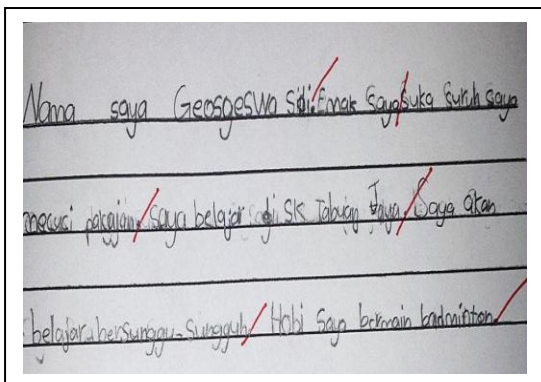 Nama saya Geosgeswa Sidi. Emak saya suka suruh saya
mecuci pakajan. Saya belajar di SK Tabuan Jaya. Saya akan
belajar bersunggu-sungguh. Hobi saya bermain badminton.